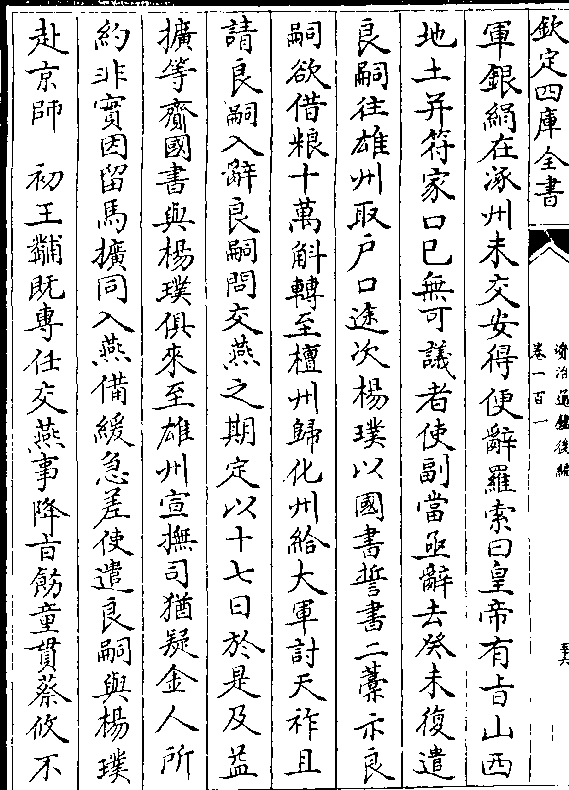 欽定四庫全書
資治通鑑後編
卷一百一
軍銀絹在涿州未交安得便辭羅索曰皇帝有㫖山西
地土并符家口已無可議者使副當亟辭去癸未復遣
良嗣往雄州取戶口途次楊璞以國書誓書二藁示良
嗣欲借粮十萬斛轉至檀州歸化州給大軍討天祚且
請良嗣入辭良嗣問交燕之期定以十七日於是及益
擴等齎國書與楊璞俱來至雄州宣撫司猶疑金人所
約非實因留馬擴同入燕備緩急差使遣良嗣與楊璞
赴京師　初王黼既專任交燕事降㫖飭童貫蔡攸不